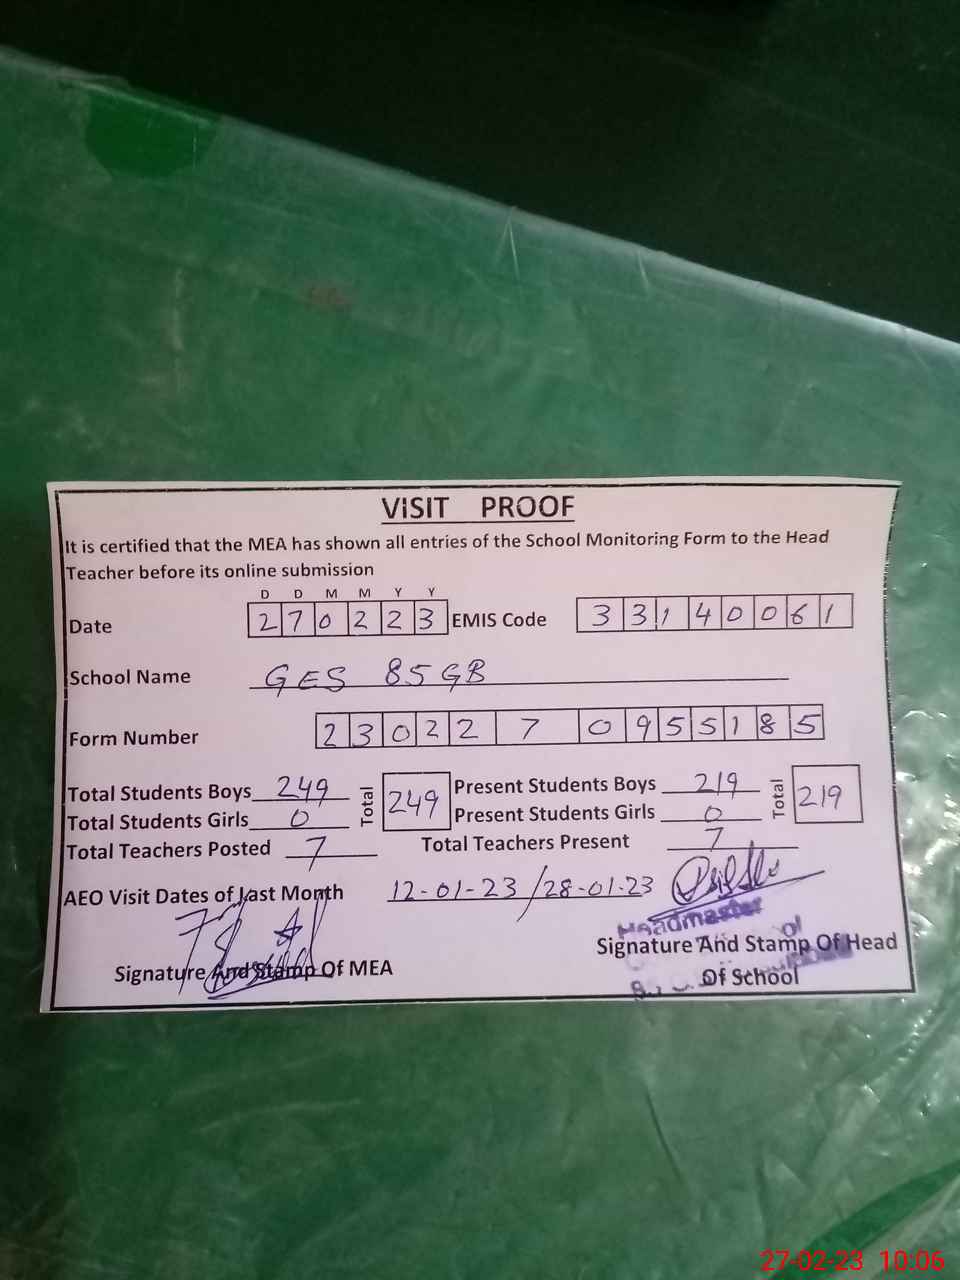 VISIT PROOF
It is certified that the MEA has shown all entries of the School Monitoring Form to the Head
Teacher before its online submission
D D M M Y Y
Date 270223 EMIS Code 33140061
School Name GES 85 GB
Form Number 2302270955185
Total Students Boys 249 Total 249 Present Students Boys 219 Total 219
Total Students Girls 0 Present Students Girls 0
Total Teachers Posted 7 Total Teachers Present 7
AEO Visit Dates of Last Month 12-01-23/28-01-23
Headmaster
Signature And Stamp Of MEA Signature And Stamp Of Head
Of School
27-02-23 10:06